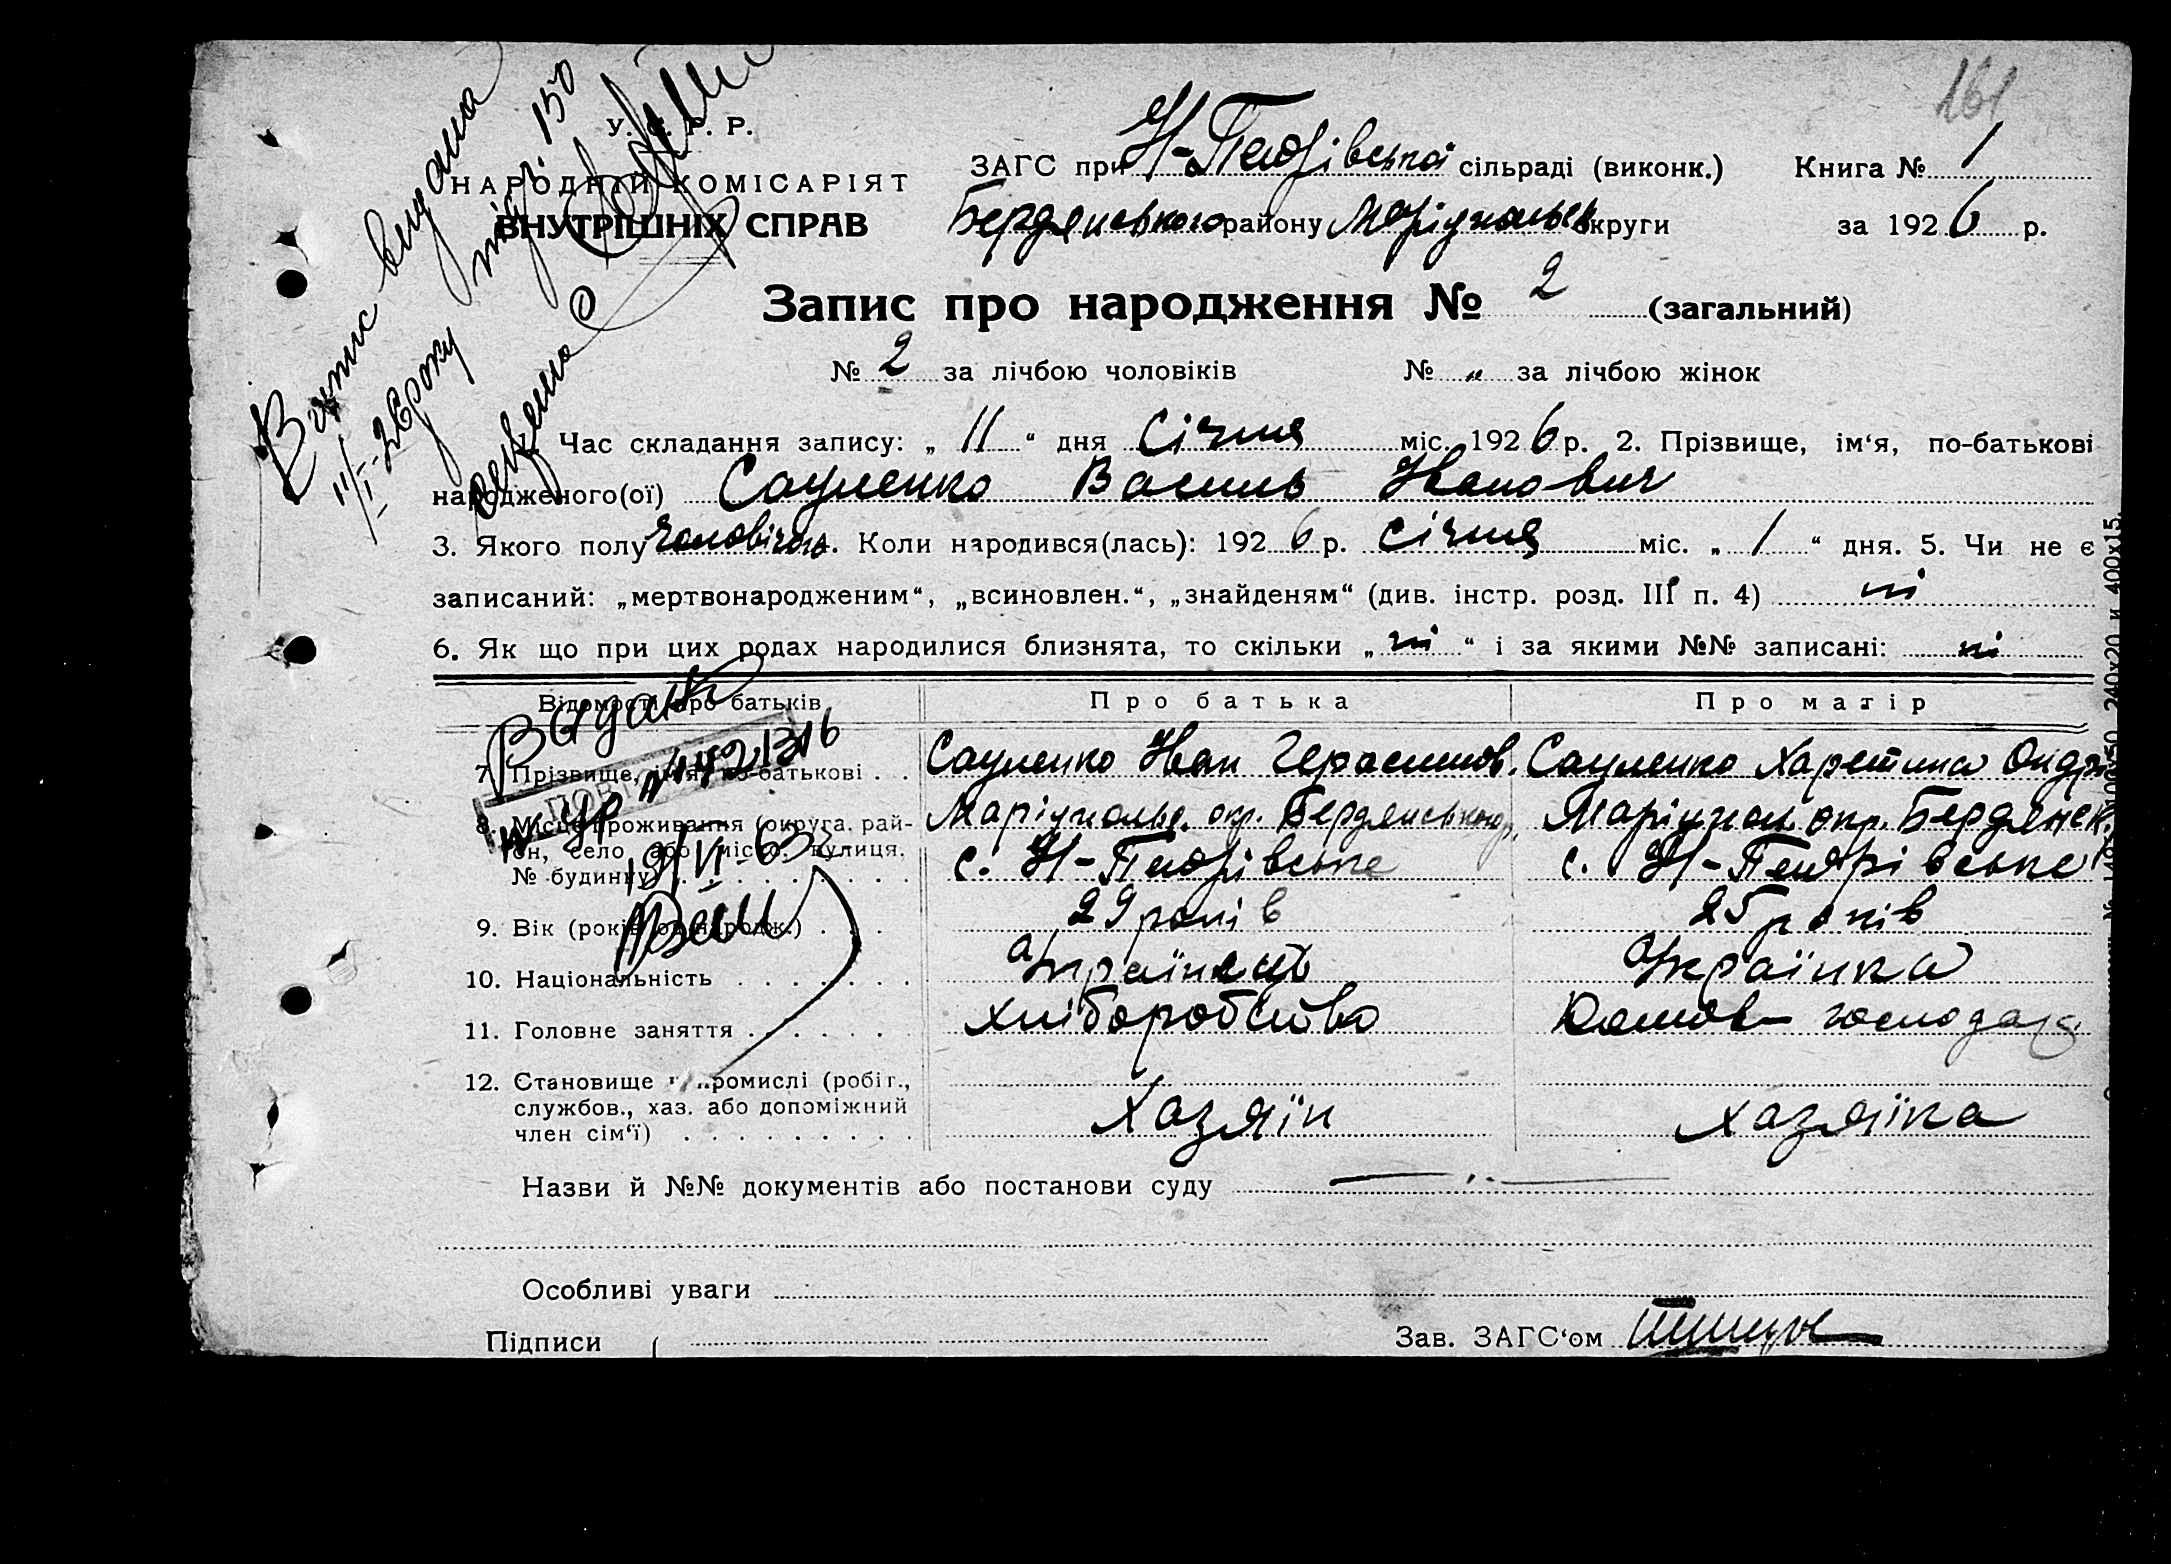 161
У. С. Р. Р.
НАРОДНІЙ КОМІСАРІЯТ
ВНУТРІШНІХ СПРАВ
ЗАГС при Н-Петрівської сільраді (виконк.) Книга № 1
Бердянського району Маріупольск округи за 1926 р.
Витис видана
11/I-26 року
150
Запис про народження № 2 (загальний)
№ 2 за лічбою чоловіків № „ за лічбою жінок
Час складання запису: „ 11 “ дня Січня міс. 1926 р. 2. Прізвище, ім‘я, по-батькові
народженого(ої) Сауленко Василь Іванович
3. Якого полу чоловічого. Коли народився(лась): 1926 р. Січня міс. „ 1 “ дня. 5. Чи не є
записаний: „мертвонародженим“, „всиновлен.“, „знайденям“ (див. інстр. розд. III п. 4) ні
6. Як що при цих родах народилися близнята, то скільки „ ні “ і за якими №№ записані: ні
Відомості про батьків Про батька Про матір
7. Прізвище, ім‘я, по-батькові . . Сауленко Іван Герасимов. Сауленко Харетина Ондр
8. Місце проживання (округа, рай- Маріупольс. окр. Бердянського р. Маріупол. окр. Бердянск.
он, село або місто, вулиця,
№ будинку) с. Н-Петрівське с. Н-Петрівське
9. Вік (років од народж.) . . . 29 років 25 років
10. Національність . . . . . . . Українець Українка
11. Головне заняття . . . . . . хліборобство Домов- господар.
12. Становище в промислі (робіт.,
службов., хаз. або допоміжний
член сім‘ї) . . . . . . . . . Хазяїн хазяїка
Видано
19/VI-63
Назви й №№ документів або постанови суду
Особливі уваги
Підписи Зав. ЗАГС‘ом
240х20 и 400х15.